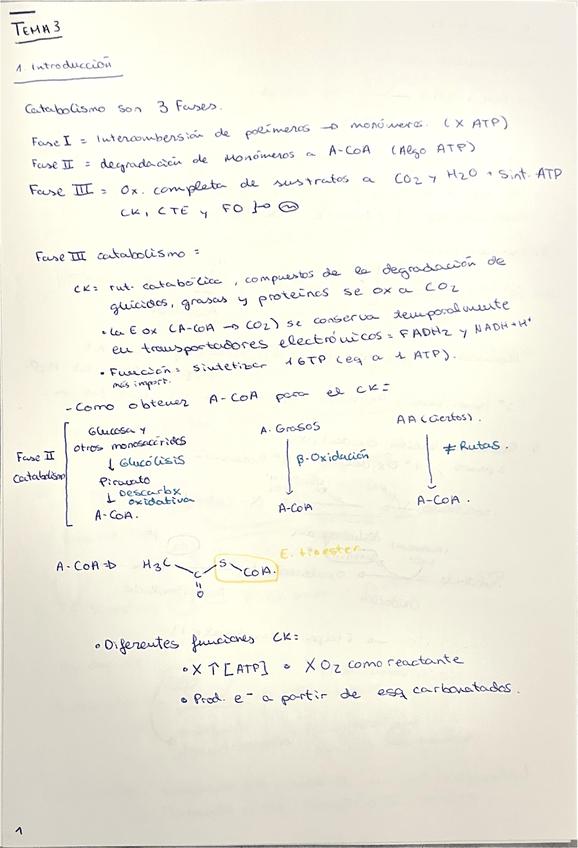 TEMA 3
1. Introducción
Catabolismo son 3 Fases.
Fase I = Intercombersión de polímeros → monómeros. (X ATP)
Fase II = degradación de Monómeros a A-CoA (Algo ATP)
Fase III = Ox. completa de sustratos a CO2 y H2O + Sint. ATP
CK, CTE y FO
Fase III catabolismo =
CK = rut. catabólica, compuestos de la degradación de
glúcidos, grasas y proteinas se ox a CO2
• La E ox (A-CoA → CO2) se conserva temporalmente
en transportadores electrónicos = FADH2 y NADH+H+
• Función = Sintetizar 1 GTP (eq a 1 ATP).
más import.
- Como obtener A-CoA para el CK =
Fase II
Catabolismo
Glucosa y
otros monosacáridos
↓ Glucólisis
Piruvato
↓ Descarbx
oxidativa
A-CoA.
A. Grasos
β-Oxidación
A-CoA
AA (Ciertos)
≠ Rutas.
A-CoA.
A-CoA ⇒ H3C C O S CoA.
E. tioester
• Diferentes funciones CK:
• X ↑ [ATP] • X O2 como reactante
• Prod. e- a partir de esq carbonatados.
1